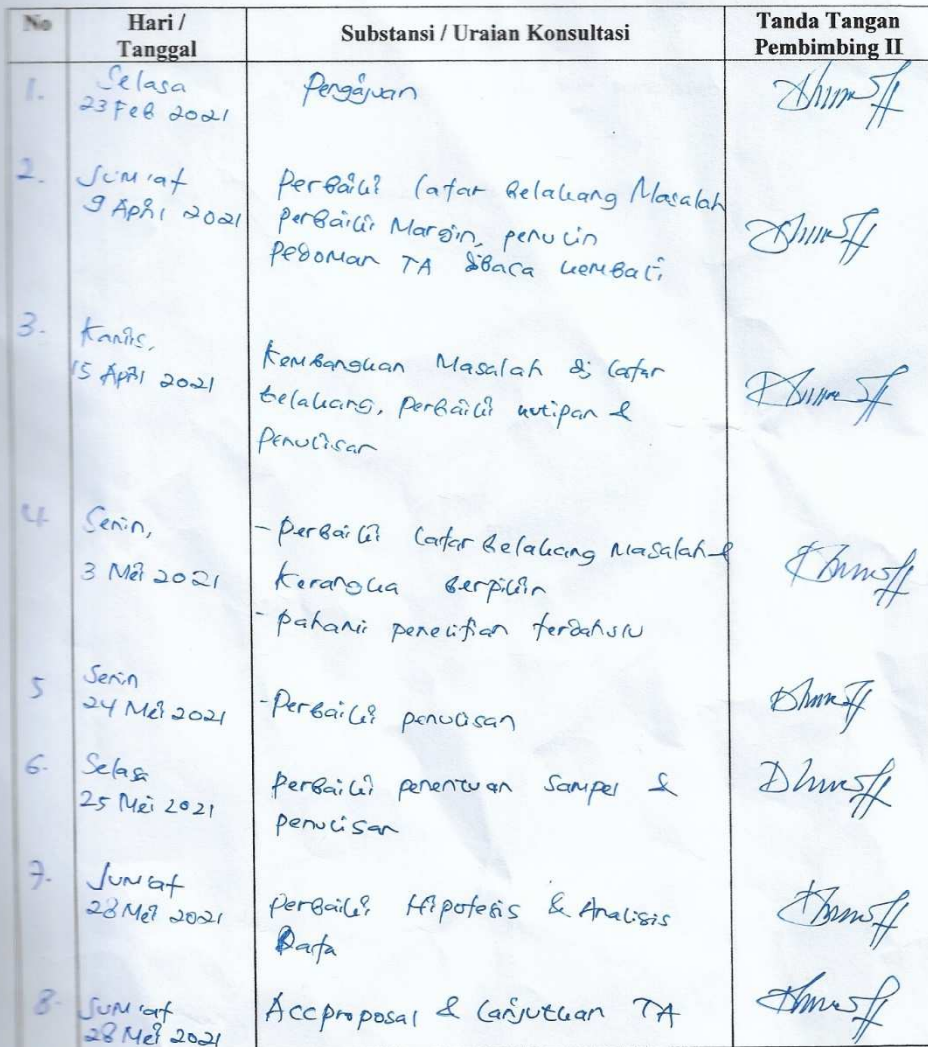 No
Hari /
Tanggal
Substansi / Uraian Konsultasi
Tanda Tangan
Pembimbing II
1.
Selasa
23 Feb 2021
Pengajuan
2.
Jum'at
9 April 2021
Perbaiki Latar Belakang Masalah
perbaiki Margin,
pedoman TA dibaca kembali
3.
Kamis,
15 April 2021
Kembangkan Masalah di latar
belakang, perbaiki kutipan &
penulisan
4.
Senin,
3 Mei 2021
- Perbaiki latar belakang masalah &
Kerangka berpikir
- pahami penelitian terdahulu
5
Senin
24 Mei 2021
- Perbaiki penulisan
6.
Selasa
25 Mei 2021
perbaiki penentuan Sampel &
penulisan
7.
Jum'at
28 Mei 2021
perbaiki Hipotesis & Analisis
Data
8.
Jum'at
28 Mei 2021
Acc proposal & lanjutkan TA